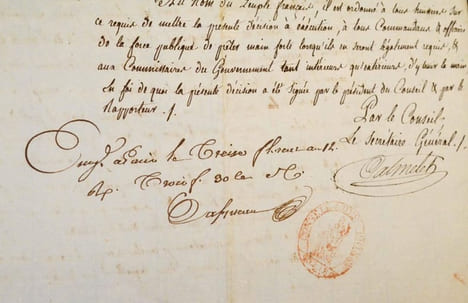 Au nom du Peuple français, il est ordonné à tous huissiers sur
ce requis de mettre la présente décision à exécution, à tous Commandans & officiers
de la force publique de prêter main forte lorsqu'ils en seront légalement requis, &
aux Commissaires du Gouvernement tant intérieurs qu'extérieurs, d'y tenir la main
En foi de quoi la présente décision a été signée par le président du Conseil & par le
Rapporteur ./.
Par le Conseil
Le Secrétaire Général ./.
a Paris le Treize an 12
Trois f. 30